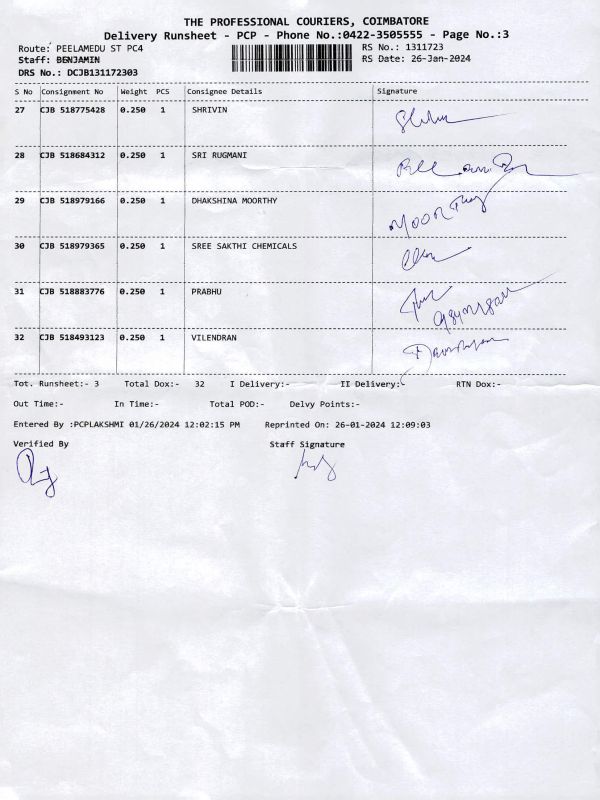 THE PROFESSIONAL COURIERS, COIMBATORE
Delivery Runsheet - PCP - Phone No.:0422-3505555 - Page No.:3
Route: PEELAMEDU ST PC4 RS No.: 1311723
Staff: BENJAMIN RS Date: 26-Jan-2024
DRS No.: DCJB131172303
S No Consignment No Weight PCS Consignee Details Signature
27 CJB 518775428 0.250 1 SHRIVIN
28 CJB 518684312 0.250 1 SRI RUGMANI
29 CJB 518979166 0.250 1 DHAKSHINA MOORTHY
30 CJB 518979365 0.250 1 SREE SAKTHI CHEMICALS
31 CJB 518883776 0.250 1 PRABHU
32 CJB 518493123 0.250 1 VILENDRAN
Tot. Runsheet:- 3 Total Dox:- 32 I Delivery:- II Delivery:- RTN Dox:-
Out Time:- In Time:- Total POD:- Delvy Points:-
Entered By :PCPLAKSHMI 01/26/2024 12:02:15 PM Reprinted On: 26-01-2024 12:09:03
Verified By Staff Signature